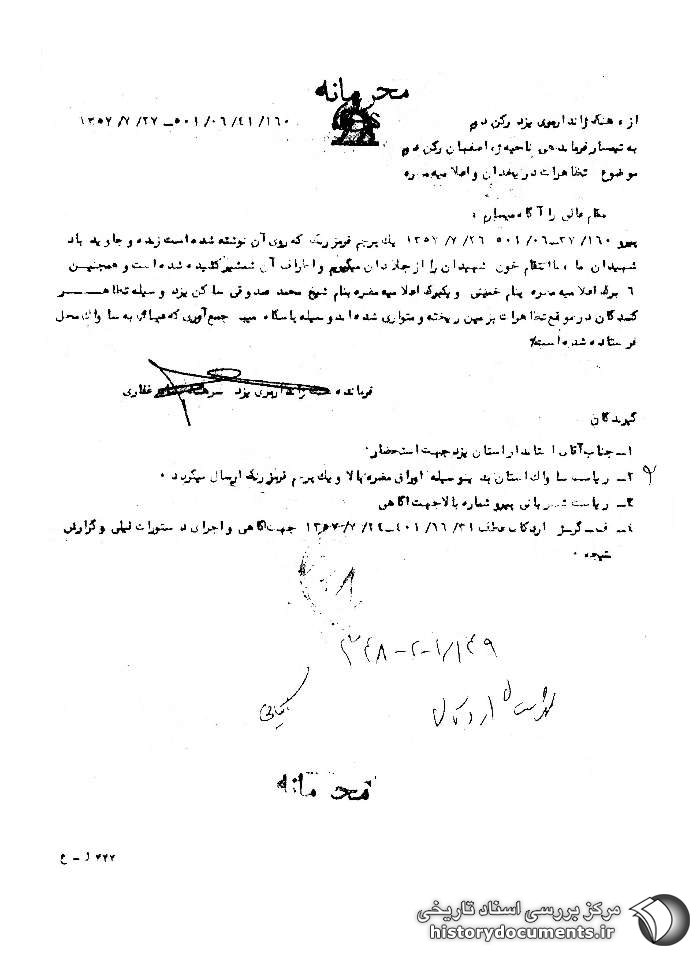 محرمانه
از هنگ ژاندارمری یزد رکن دوم ۱۶۰/ ۴۱/ ۰۶/ ۵۰۱ـ ۲۷/ ۷/ ۱۳۵۷
به تیمسار فرماندهی ناحیه ژ. اصفهان رکن دوم
موضوع تظاهرات در و اعلامیه مضره
مقام عالی را آگاه میسازم :
پیرو ۱۶۰/ ۳۷ـ ۰۶/ ۵۰۱ ۲۶/ ۷/ ۱۳۵۷ یک پرچم قرمز رنگ که روی آن نوشته شده است زنده و جاوید باد
شهیدان ما ، ما انتقام خون شهیدان را از جلادان میگیریم و اطراف آن شمشیر کشیده شده است و همچنین
۶ برگ اعلامیه مضره بنام خمینی و یکبرگ اعلامیه مضره بنام شیخ محمد صدوقی ساکن یزد وسیله تظاهـــر
کنندگان در موقع تظاهرات بزمین ریخته و متواری شده اند وسیله پاسگاه میبد جمع آوری که به ساواک محل
فرستاده شده است٪
فرمانده ژاندارمری یزد سرهنگ غفاری
گیرندگان
۱ـ جناب آقای استاندار استان یزد جهت استحضار.
۲ـ ریاست ساواک استان یزد بدینوسیله اوراق مضره بالا و یک پرچم قرمز رنگ ارسال میگردد .
۳ـ ریاست شهربانی پیرو شماره بالا جهت آگاهی
۴ـ ف ـ گروهان اردکان عطف ۳۱/ ۱۶/ ۴۰۱ـ ۲۴/ ۷/ ۱۳۵۷ جهت آگاهی و اجرای دستورات قبلی و گزارش
نتیجه .
اردکان
محرمانه
۴۴۲ ل ـ ع
مرکز بررسی اسناد تاریخی
historydocuments.ir